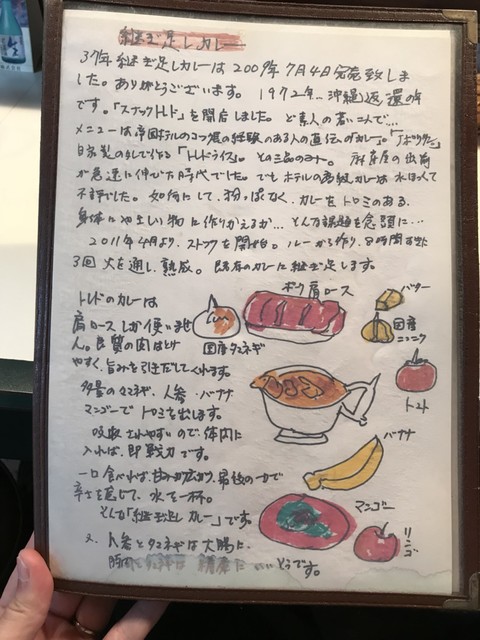 継ぎ足しカレー
37年継ぎ足しカレーは2009年7月4日完売致しま
した。ありがとうございます。1972年…沖縄返還の年
です。「スナックトルド」を開店しました。ど素人の若い二人で…
メニューは帝国ホテルのコック長の経験のある人の直伝のカレー。
自家製のもしで作る「トルドライス」。その三品のみ。
が急速に伸びた時代でした。でもホテルの高級カレーは水ぽくて
不評でした。如何にして、粉っぽなく、カレーをトロミのある、
身体にやさしい物に作りかえるか…そんな課題を念頭に…
2011年4月より、ストックを開始。ルーから作り、8時間
3回火を通し、熟成。既存のカレーに継ぎ足します。
トルドのカレーは
肩ロースしか使いませ
ん。良質の肉はとけ
やすく、旨みを引きだしてくれます。
多量のタマネギ、人参、バナナ
マンゴーでトロミを出します。
吸収されやすいので、体内に
入れば、即戦力です。
一口食べれば、甘みが広がり、最後の一口で
辛さを感じて、水を一杯。
そんな「継ぎ足しカレー」です。
又、人参とタマネギは大腸に
どうです。
ポーク肩ロース
国産タマネギ
バター
国産
ニンニク
トマト
バナナ
マンゴー
リンゴ